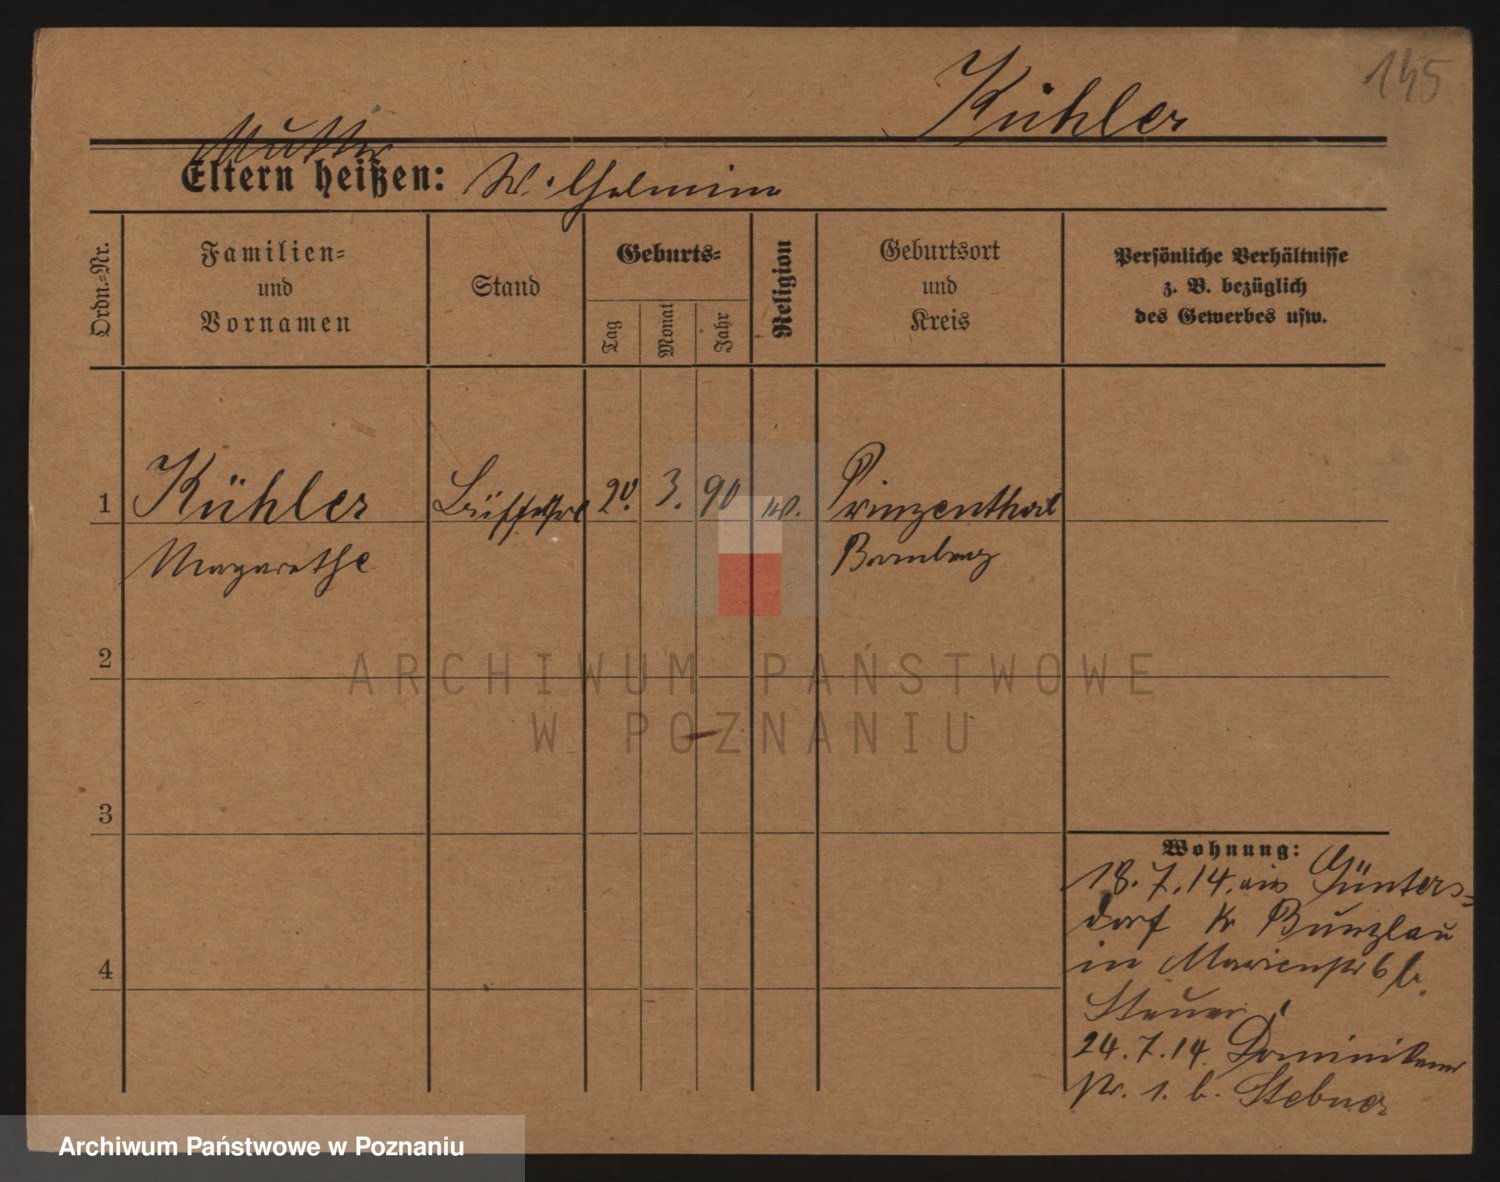 145
Kühler
Mutter
Eltern heißen: Wilhelmine
Ordn.=Nr.
Familien=
und
Vornamen
Stand
Geburts=
Tag
Monat
Jahr
Religion
Geburtsort
und
Kreis
Persönliche Verhältnisse
z. B. bezüglich
des Gewerbes usw.
1 Kühler 20. 3. 90 Prinzenthal
Margarethe Bromberg
2
3
4
Wohnung:
18.7.14. aus Günters=
dorf Kr Bunzlau
in Marienstr 6 b.
24.7.14. Dominikaner
str. 1. b. Stebner
ARCHIWUM PAŃSTWOWE
W POZNANIU
Archiwum Państwowe w Poznaniu